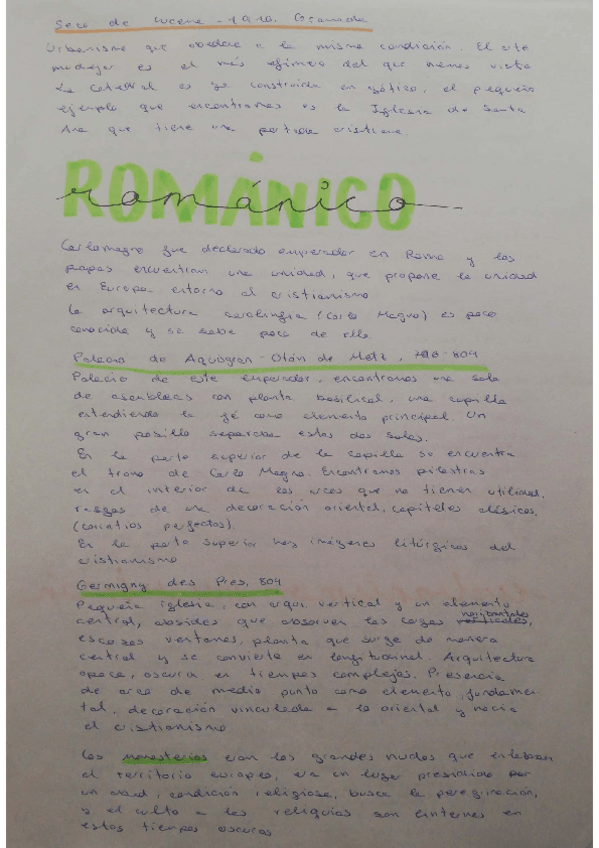 Seco de Lucena - 1910. Granada
Urbanismo que obedece a la misma condición. El arte
mudejar es el más efímero del que hemos visto
La catedral es ya construida en gótico, el pequeño
ejemplo que encontramos es la Iglesia de Santa
Ana que tiene una portada cristiana.
ROMÁNICO
románico
Carlomagno fue declarado emperador en Roma y los
papas encuentran una unidad, que propone la unidad
en Europa entorno al cristianismo
La arquitectura carolingia (Carlo Magno) es poco
conocida y se sabe poco de ella.
Palacio de Aquisgran - Otón de Metz, 790-804
Palacio de este emperador, encontramos una sala
de asambleas con planta basilical, una capilla
entendiendo la fé como elemento principal. Un
gran pasillo separaba estas dos salas.
En la parte superior de la capilla se encuentra
el trono de Carlo Magno. Encontramos pilastras
en el interior de los arcos que no tienen utilidad,
rasgos de una decoración oriental, capiteles clásicos,
(corintios perfectos).
En la parte superior hay imágenes litúrgicas del
cristianismo
Germigny des Pres, 804
Pequeña iglesia, con vertical y un elemento
central, absides que absorven las cargas verticales, horizontales
escasas ventanas, planta que surge de manera
central y se convierte en longitudinal. Arquitectura
opaca, oscura en tiempos complejos. Presencia
de arco de medio punto como elemento fundamen-
tal. decoración vinculada a lo oriental y hacia
el cristianismo
Los monasterios eran los grandes nudos que enlazan
el territorio europeo, era un lugar presidido por
un abad, condición religiosa, busca la peregrinación,
y el culto a las reliquias son en
estos tiempos oscuros